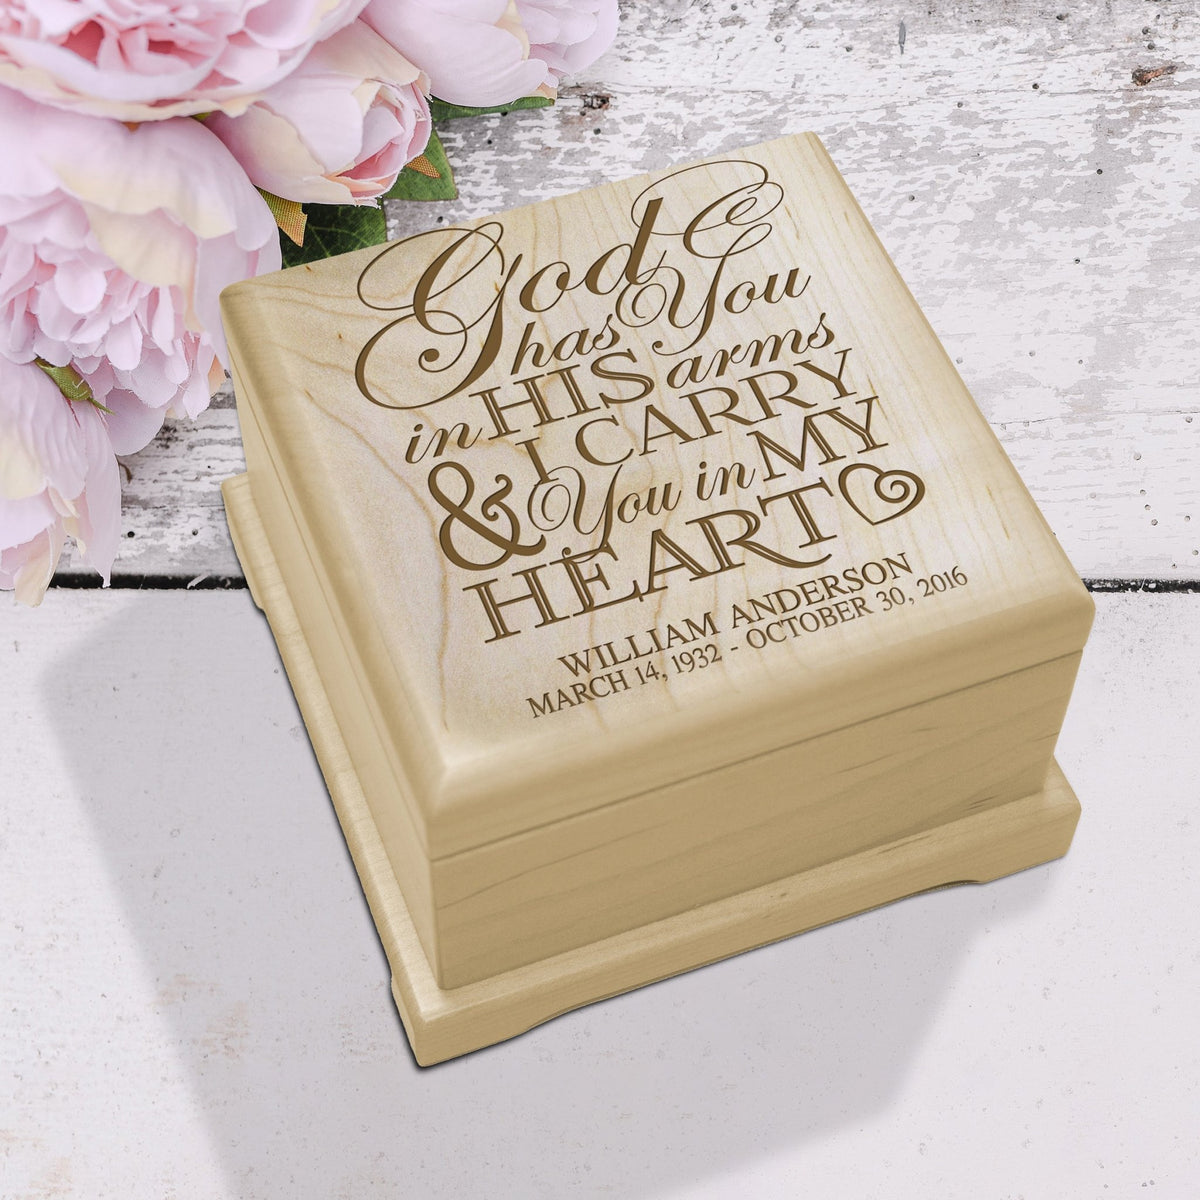 God
has You
in HIS arms
& I CARRY
You in MY
HEART
WILLIAM ANDERSON
MARCH 14, 1932 - OCTOBER 30, 2016